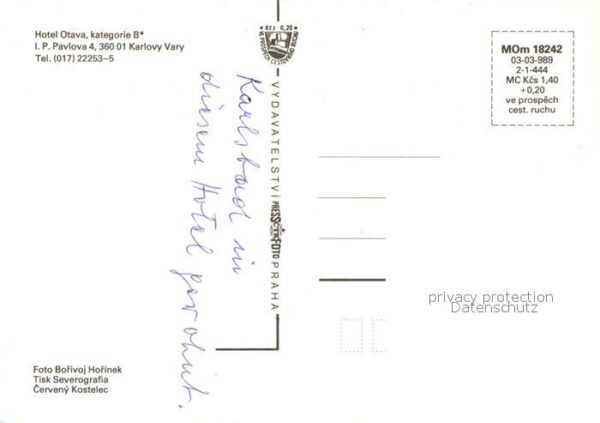 Hotel Otava, kategorie B*
I. P. Pavlova 4, 360 01 Karlovy Vary
Tel. (017) 22253–5
Kčs 0,20
VE PROSPĚCH CESTOVNÍHO RUCHU
MOm 18242
03-03-989
2-1-444
MC Kčs 1,40
+0,20
ve prospěch
cest. ruchu
Karlsbad in
diesem Hotel gewohnt.
VYDAVATELSTVÍ PRESSFOTO PRAHA
privacy protection
Datenschutz
Foto Bořivoj Hořínek
Tisk Severografia
Červený Kostelec